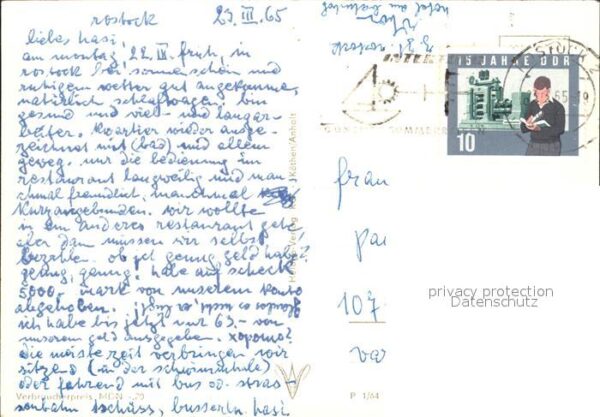 rostock 23. III. 65
liebes hasi,
am montag, 22. III. früh, in
rostock bei sonnenschön und
ruhigem wetter gut angekommen
natürlich schlafwagen bin
gesund und viel- und langar-
beiter. Quartier wieder ausge-
zeichnet mit (bad) und allem
geweg. nur die bedienung im
restaurant langweilig und man
chmal freundlich, manchmal
kurzangebunden. wir wollte
in ein anderes restaurant gehe
aber dann müssen wir selbst
bezahlen. ob ich genug geld habe?
genug, genug! habe auf scheck
5000,- mark von unserem konto
abgehoben.
ich habe bis jetzt nur 63.- von
unserem geld ausgegeben. хорошо?
die meiste zeit verbringen wir
sitzend (in der schwimmhalle)
oder fahrend mit bus od. stras-
senbahn tschüss, busserln, hasi
Verbraucherpreis MDN -,20
P 1/64
15 JAHRE DDR
10
frau
pa
107
va
privacy protection
Datenschutz